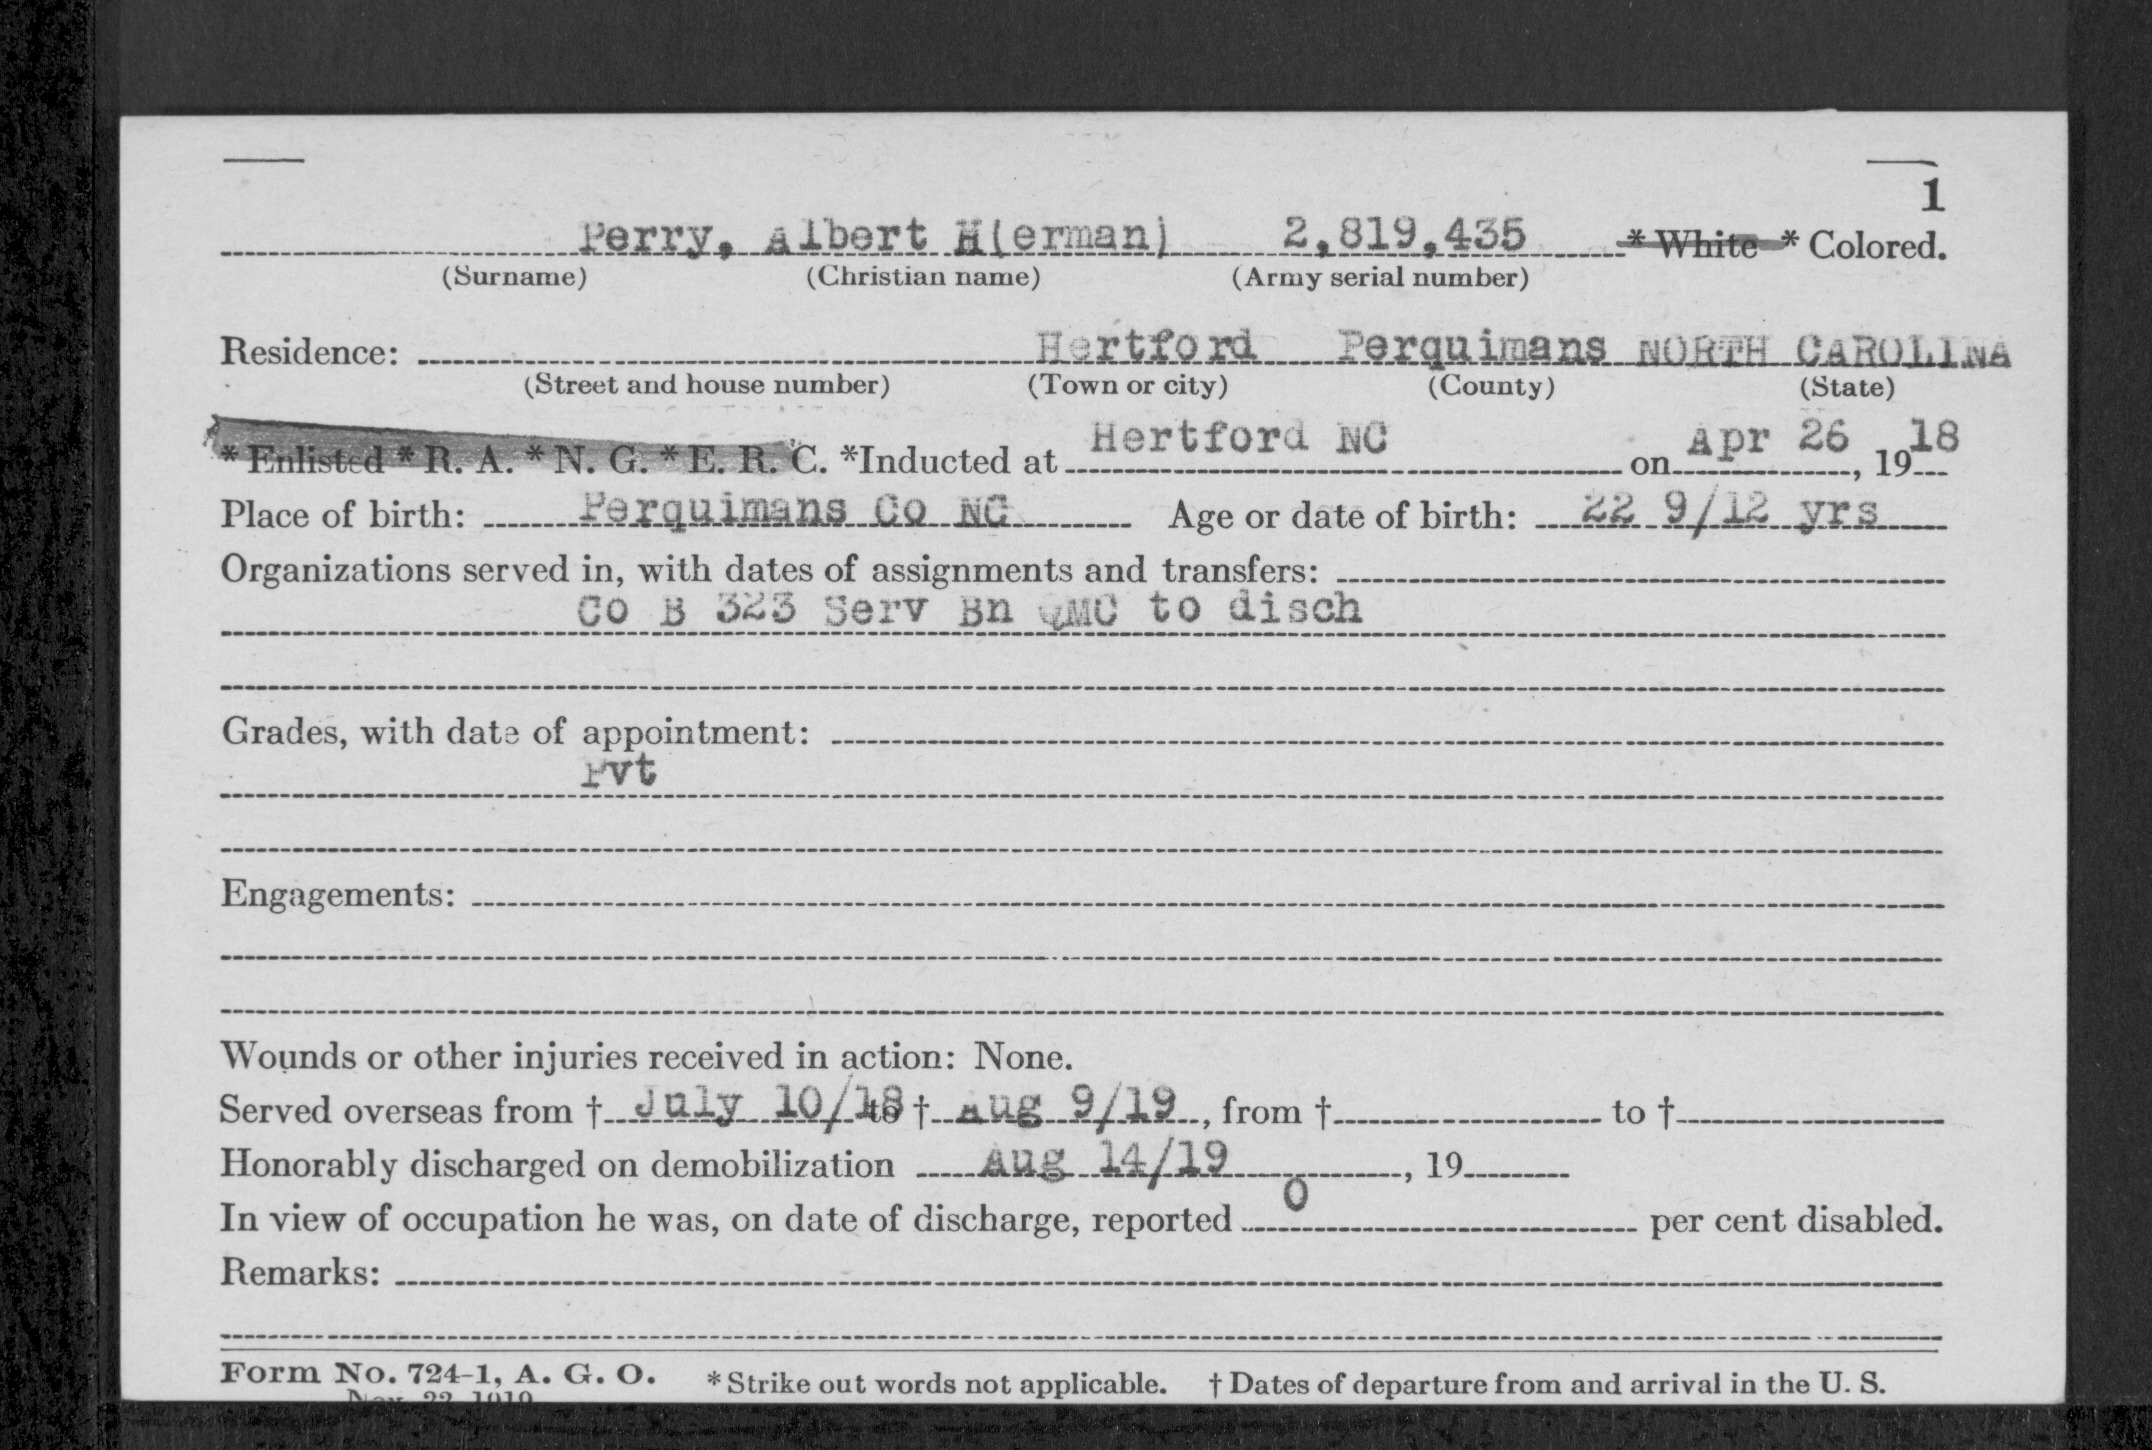 1
Perry, Albert H(erman) 2,819,435 * White * Colored.
(Surname) (Christian name) (Army serial number)
Residence: Hertford Perquimans NORTH CAROLINA
(Street and house number) (Town or city) (County) (State)
* Enlisted * R. A. * N. G. * E. R. C. *Inducted at Hertford NC on Apr 26, 1918
Place of birth: Perquimans Co NC Age or date of birth: 22 9/12 yrs
Organizations served in, with dates of assignments and transfers:
Co B 323 Serv Bn QMC to disch
Grades, with date of appointment:
Pvt
Engagements:
Wounds or other injuries received in action: None.
Served overseas from † July 10/18 to † Aug 9/19, from † to †
Honorably discharged on demobilization Aug 14/19, 19
In view of occupation he was, on date of discharge, reported 0 per cent disabled.
Remarks:
Form No. 724-1, A. G. O. * Strike out words not applicable. † Dates of departure from and arrival in the U. S.
Nov. 22, 1919